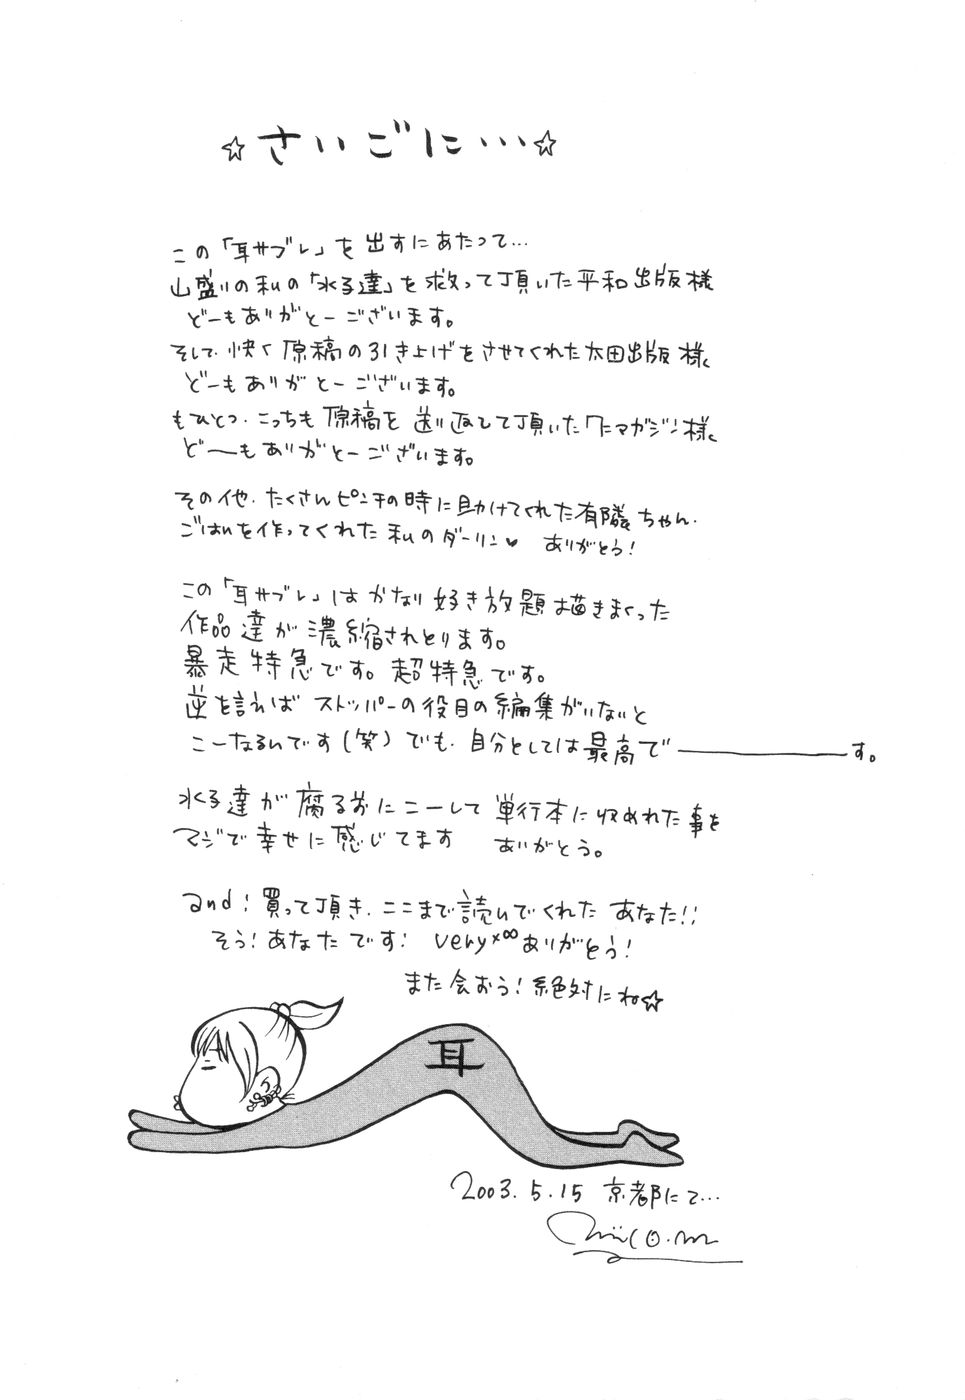 ☆さいごに…☆
この「耳サブレ」を出すにあたって…
山盛りの私の「水子達」を救って頂いた平和出版様
どーもありがとーございます。
そして、快く原稿の引き上げをさせてくれた太田出版様、
どーもありがとーございます。
もひとつ、こっちも原稿を送り返して頂いたワニマガジン様、
ど〜もありがとーございます。
その他、たくさんピンチの時に助けてくれた有隣ちゃん、
ごはんを作ってくれた私のダーリン♥ ありがとう!
この「耳サブレ」はかなり好き放題描きまくった
作品達が濃縮されとります。
暴走特急です。超特急です。
逆を言えばストッパーの役目の編集がいないと
こーなるんです(笑)でも、自分としては最高で――――す。
水子達が腐る前にこーして単行本に収められた事を
マジで幸せに感じてます ありがとう。
and! 買って頂き、ここまで読んでくれたあなた!!
そう!あなたです! very×∞ありがとう!
また会おう!絶対にね☆
耳
2003.5.15 京都にて…